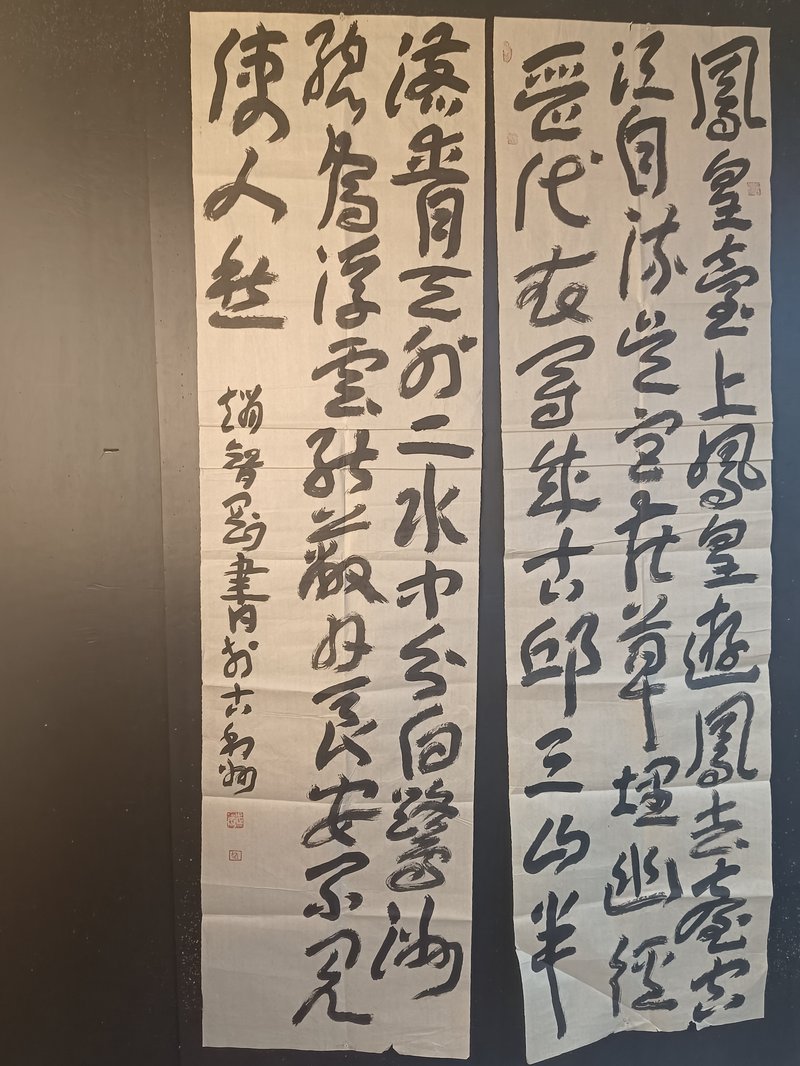 鳳皇臺上鳳皇遊鳳去臺空
江自流吴宫花草埋幽徑
晉代衣冠成古邱三山半
落青天外二水中分白鷺洲
總為浮雲能蔽日長安不見
使人愁
趙智剛書於古利州